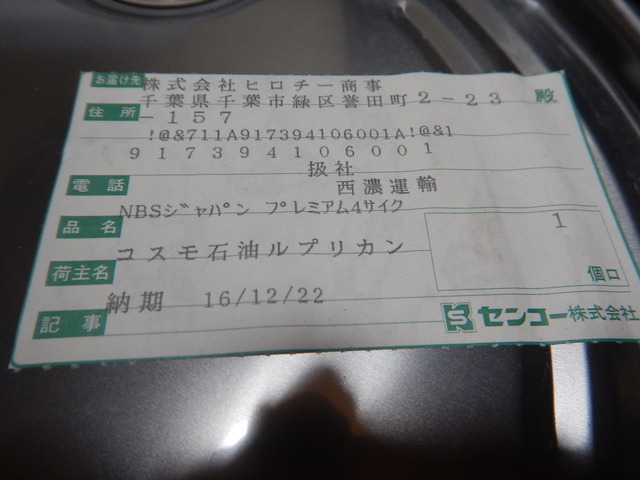 お届け先 株式会社ヒロチー商事
千葉県千葉市緑区誉田町2-23 殿
住所 -157
!@&711A917394106001A!@&1
917394106001
扱社
電話 西濃運輸
品名 NBSジャパン プレミアム4サイク
1
荷主名 コスモ石油ルブリカン
個口
記事 納期 16/12/22
センコー株式会社